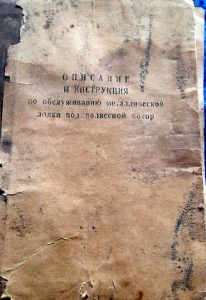 ОПИСАНИЕ
И ИНСТРУКЦИЯ
по обслуживанию металлической
лодки под подвесной мотор